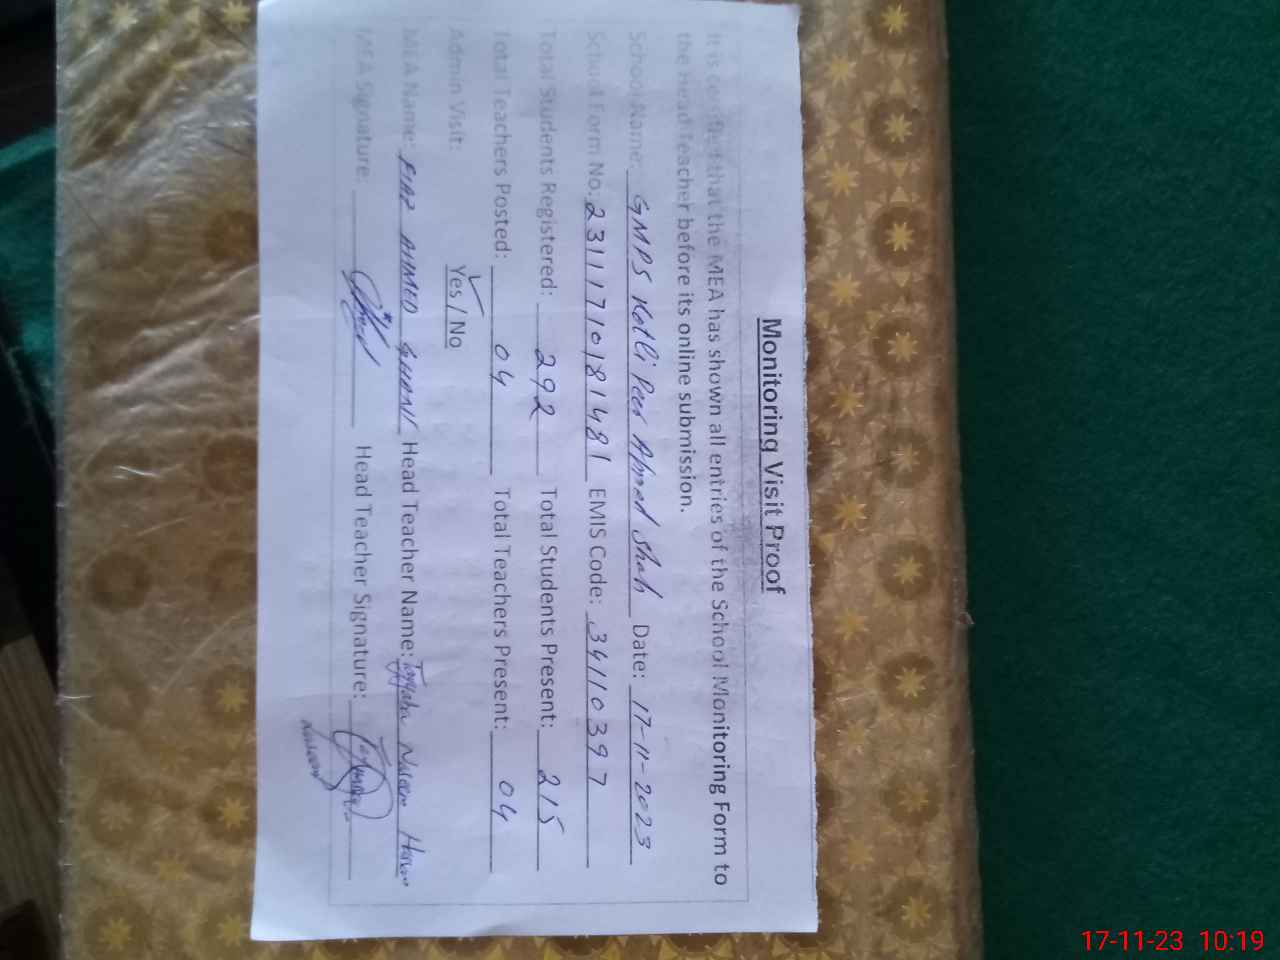 Monitoring Visit Proof
It is certified that the MEA has shown all entries of the School Monitoring Form to
the Head Teacher before its online submission.
School Name: GMPS Kotli Peer Ahmed Shah Date: 17-11-2023
School Form No: 23111710181481 EMIS Code: 34110397
Total Students Registered: 292 Total Students Present: 215
Total Teachers Posted: 04 Total Teachers Present: 04
Admin Visit: Yes / No
MEA Name: AHMED Head Teacher Name: Tayyaba
MEA Signature: Head Teacher Signature:
17-11-23 10:19